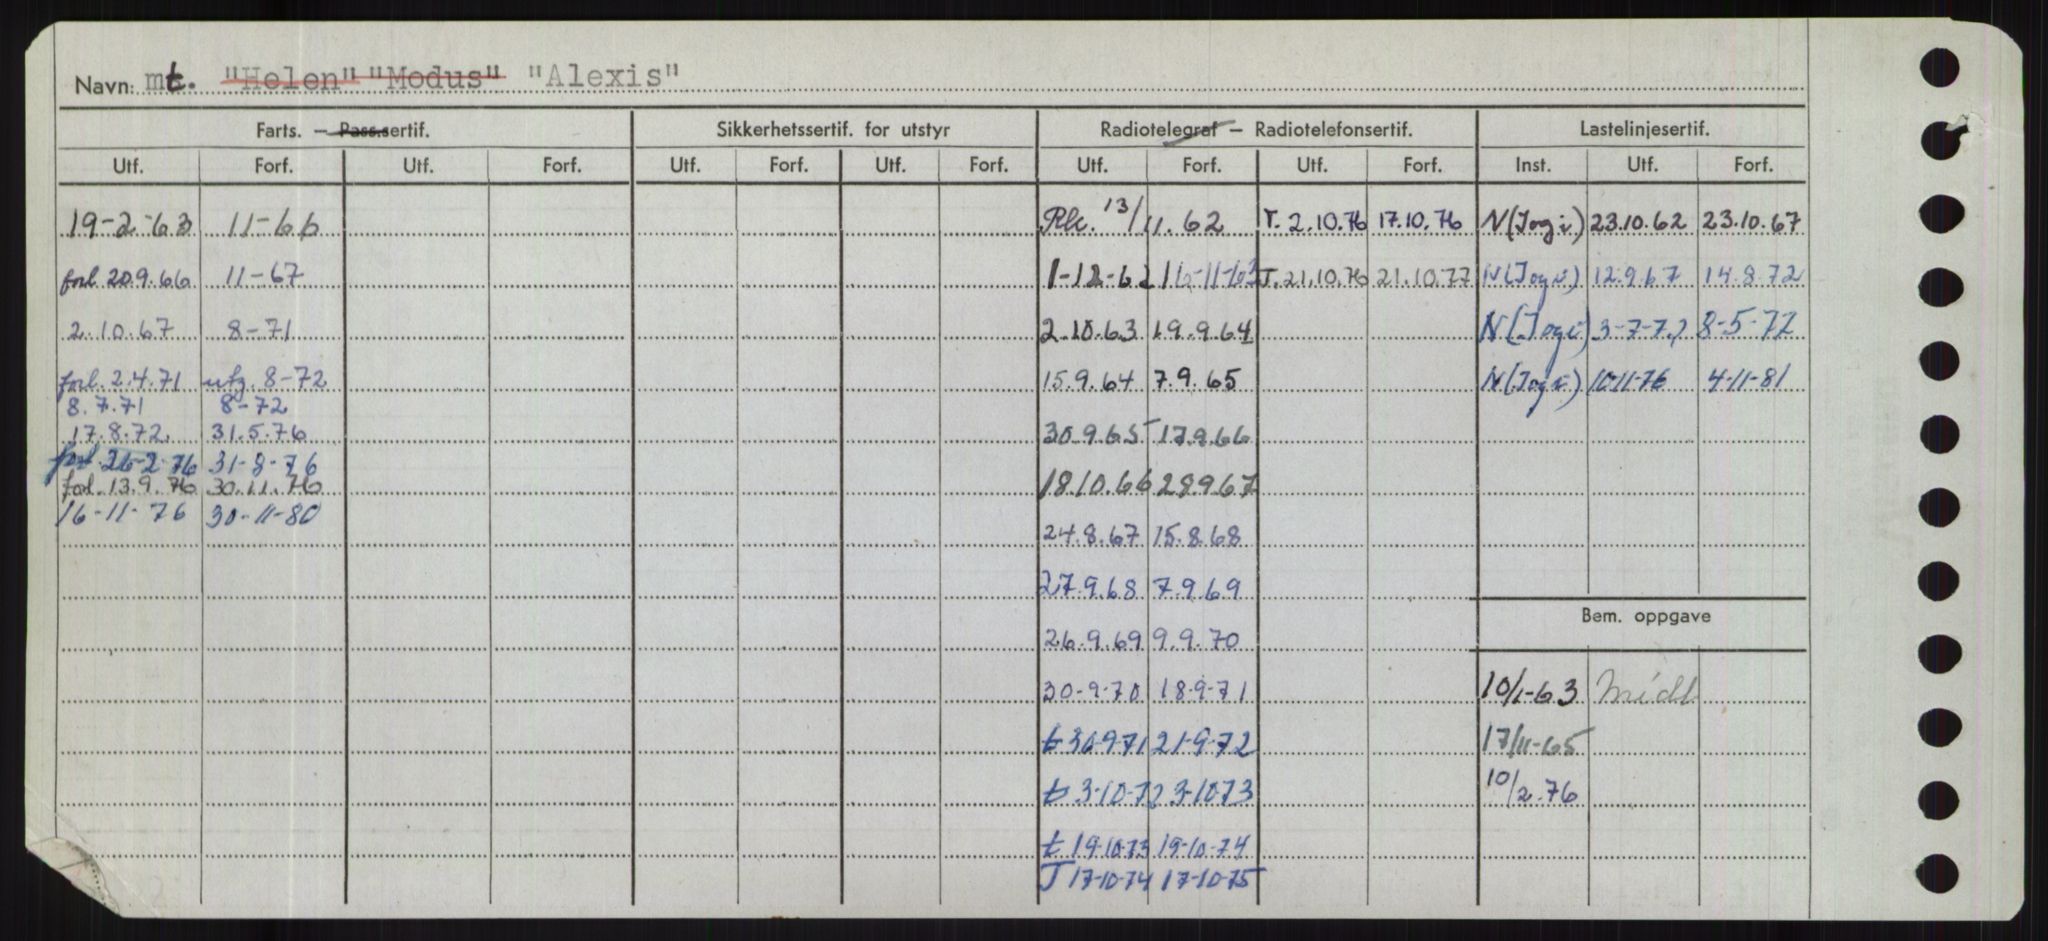 Navn: mt. "Helen" "Modus" "Alexis"
Farts. — Pass.sertif. Sikkerhetssertif. for utstyr Radiotelegraf — Radiotelefonsertif. Lastelinjesertif.
Utf. Forf. Utf. Forf. Utf. Forf. Utf. Forf. Utf. Forf. Utf. Forf. Inst. Utf. Forf.
19-2-63 11-66 13/11.62 T. 2.10.76 17.10.76 N(Jogi) 23.10.62 23.10.67
forl 20.9.66 11-67 1-12-62 16-11-63 T. 21.10.76 21.10.77 N(Jogi) 12.9.67 14.8.72
2.10.67 8-71 2.10.63 19.9.64 N(Jogi) 3-7-72 8-5-77
forl. 2.4.71 utg. 8-72 15.9.64 7.9.65 N(Jogi) 10-11-76 4-11-81
8.7.71 8-72
17.8.72. 31.5.76 30.9.65 17.9.66
forl. 26-2-76 31-8-76
forl. 13.9.76 30.11.76 18.10.66 28.9.67
16-11-76 30-11-80
24.8.67 15.8.68
27.9.68 7.9.69
Bem. oppgave
26.9.69 9.9.70
30-9-70 18-9-71 10/1-63 Midl
t 30-9-71 21-9-72 17/11-65
t 3-10-72 3-10-73 10/2.76
t 19-10-73 19-10-74
T 17-10-74 17-10-75